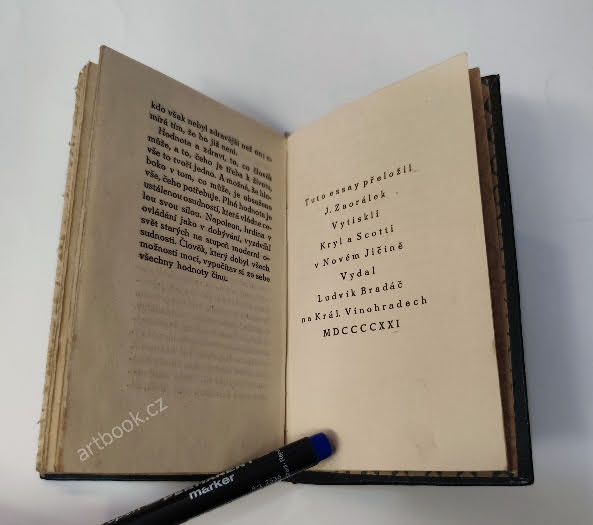 kdo však nebyl zdravější než oni u-
mírá tím, že ho již není.
Hodnota a zdraví, to, co člověk
může, a to, čeho je třeba k životu,
vše to tvoří jedno. A možná, že hlu-
boko v tom, co může, je obsaženo
vše, čeho potřebuje. Plná hodnota je
ustálenou osudností, která vládne ce-
lou svou silou. Napoleon, hrdina v
ovládání jako v dobývání, vyzdvihl
svět starých na stupeň moderní o-
sudnosti. Člověk, který dobyl všech
možností moci, vypočítav si ze sebe
všechny hodnoty činu.
Tuto essay přeložil
J. Zaorálek
Vytiskli
Kryl a Scotti
v Novém Jičíně
Vydal
Ludvík Bradáč
na Král. Vinohradech
MDCCCCXXI
artbook.cz
marker